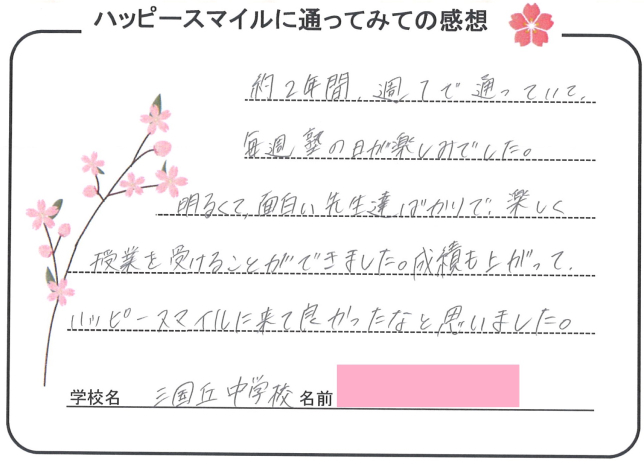 ハッピースマイルに通ってみての感想
約2年間、週1で通っていて、
毎週、塾の日が楽しみでした。
明るくて、面白い先生達ばかりで、楽しく
授業を受けることができました。成績も上がって、
ハッピースマイルに来て良かったなと思いました。
学校名 三国丘中学校 名前